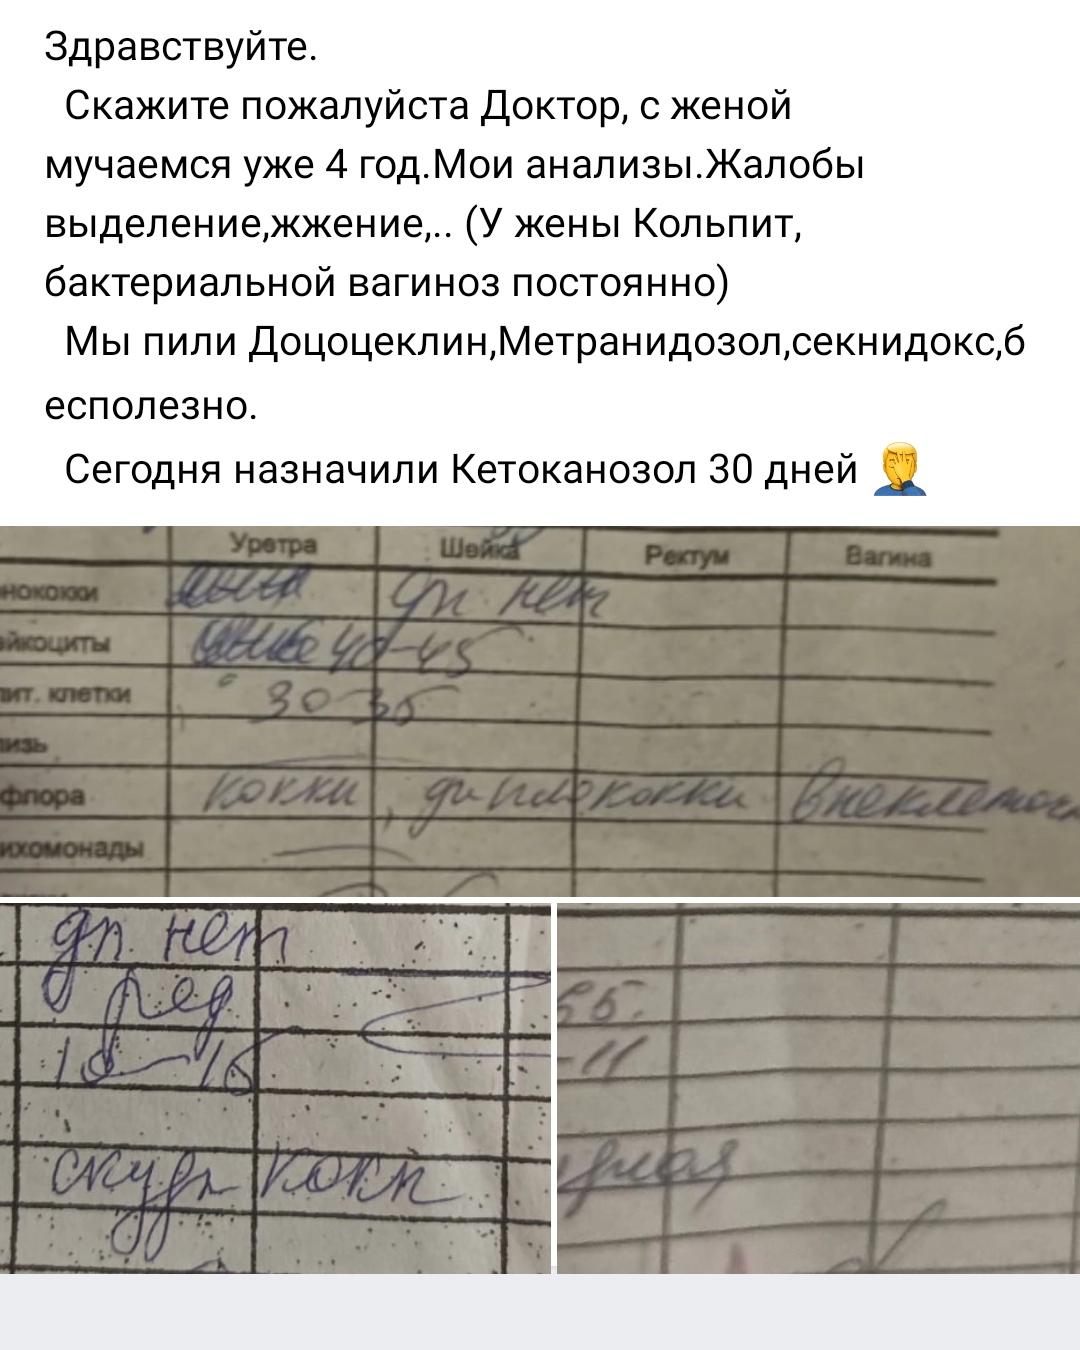 Здравствуйте.
Скажите пожалуйста Доктор, с женой
мучаемся уже 4 год.Мои анализы.Жалобы
выделение,жжение,.. (У жены Кольпит,
бактериальной вагиноз постоянно)
Мы пили Доцоцеклин,Метранидозол,секнидокс,б
есполезно.
Сегодня назначили Кетоканозол 30 дней 🤦‍♂️
Уретра Шейка Ректум Вагина
нококки гн нет
йкоциты 40-45
ит. клетки 30-35
изь
флора кокки, диплококки внеклеточн
ихомонады
гн нет
ред
10-15
скудн кокк
55.
-11